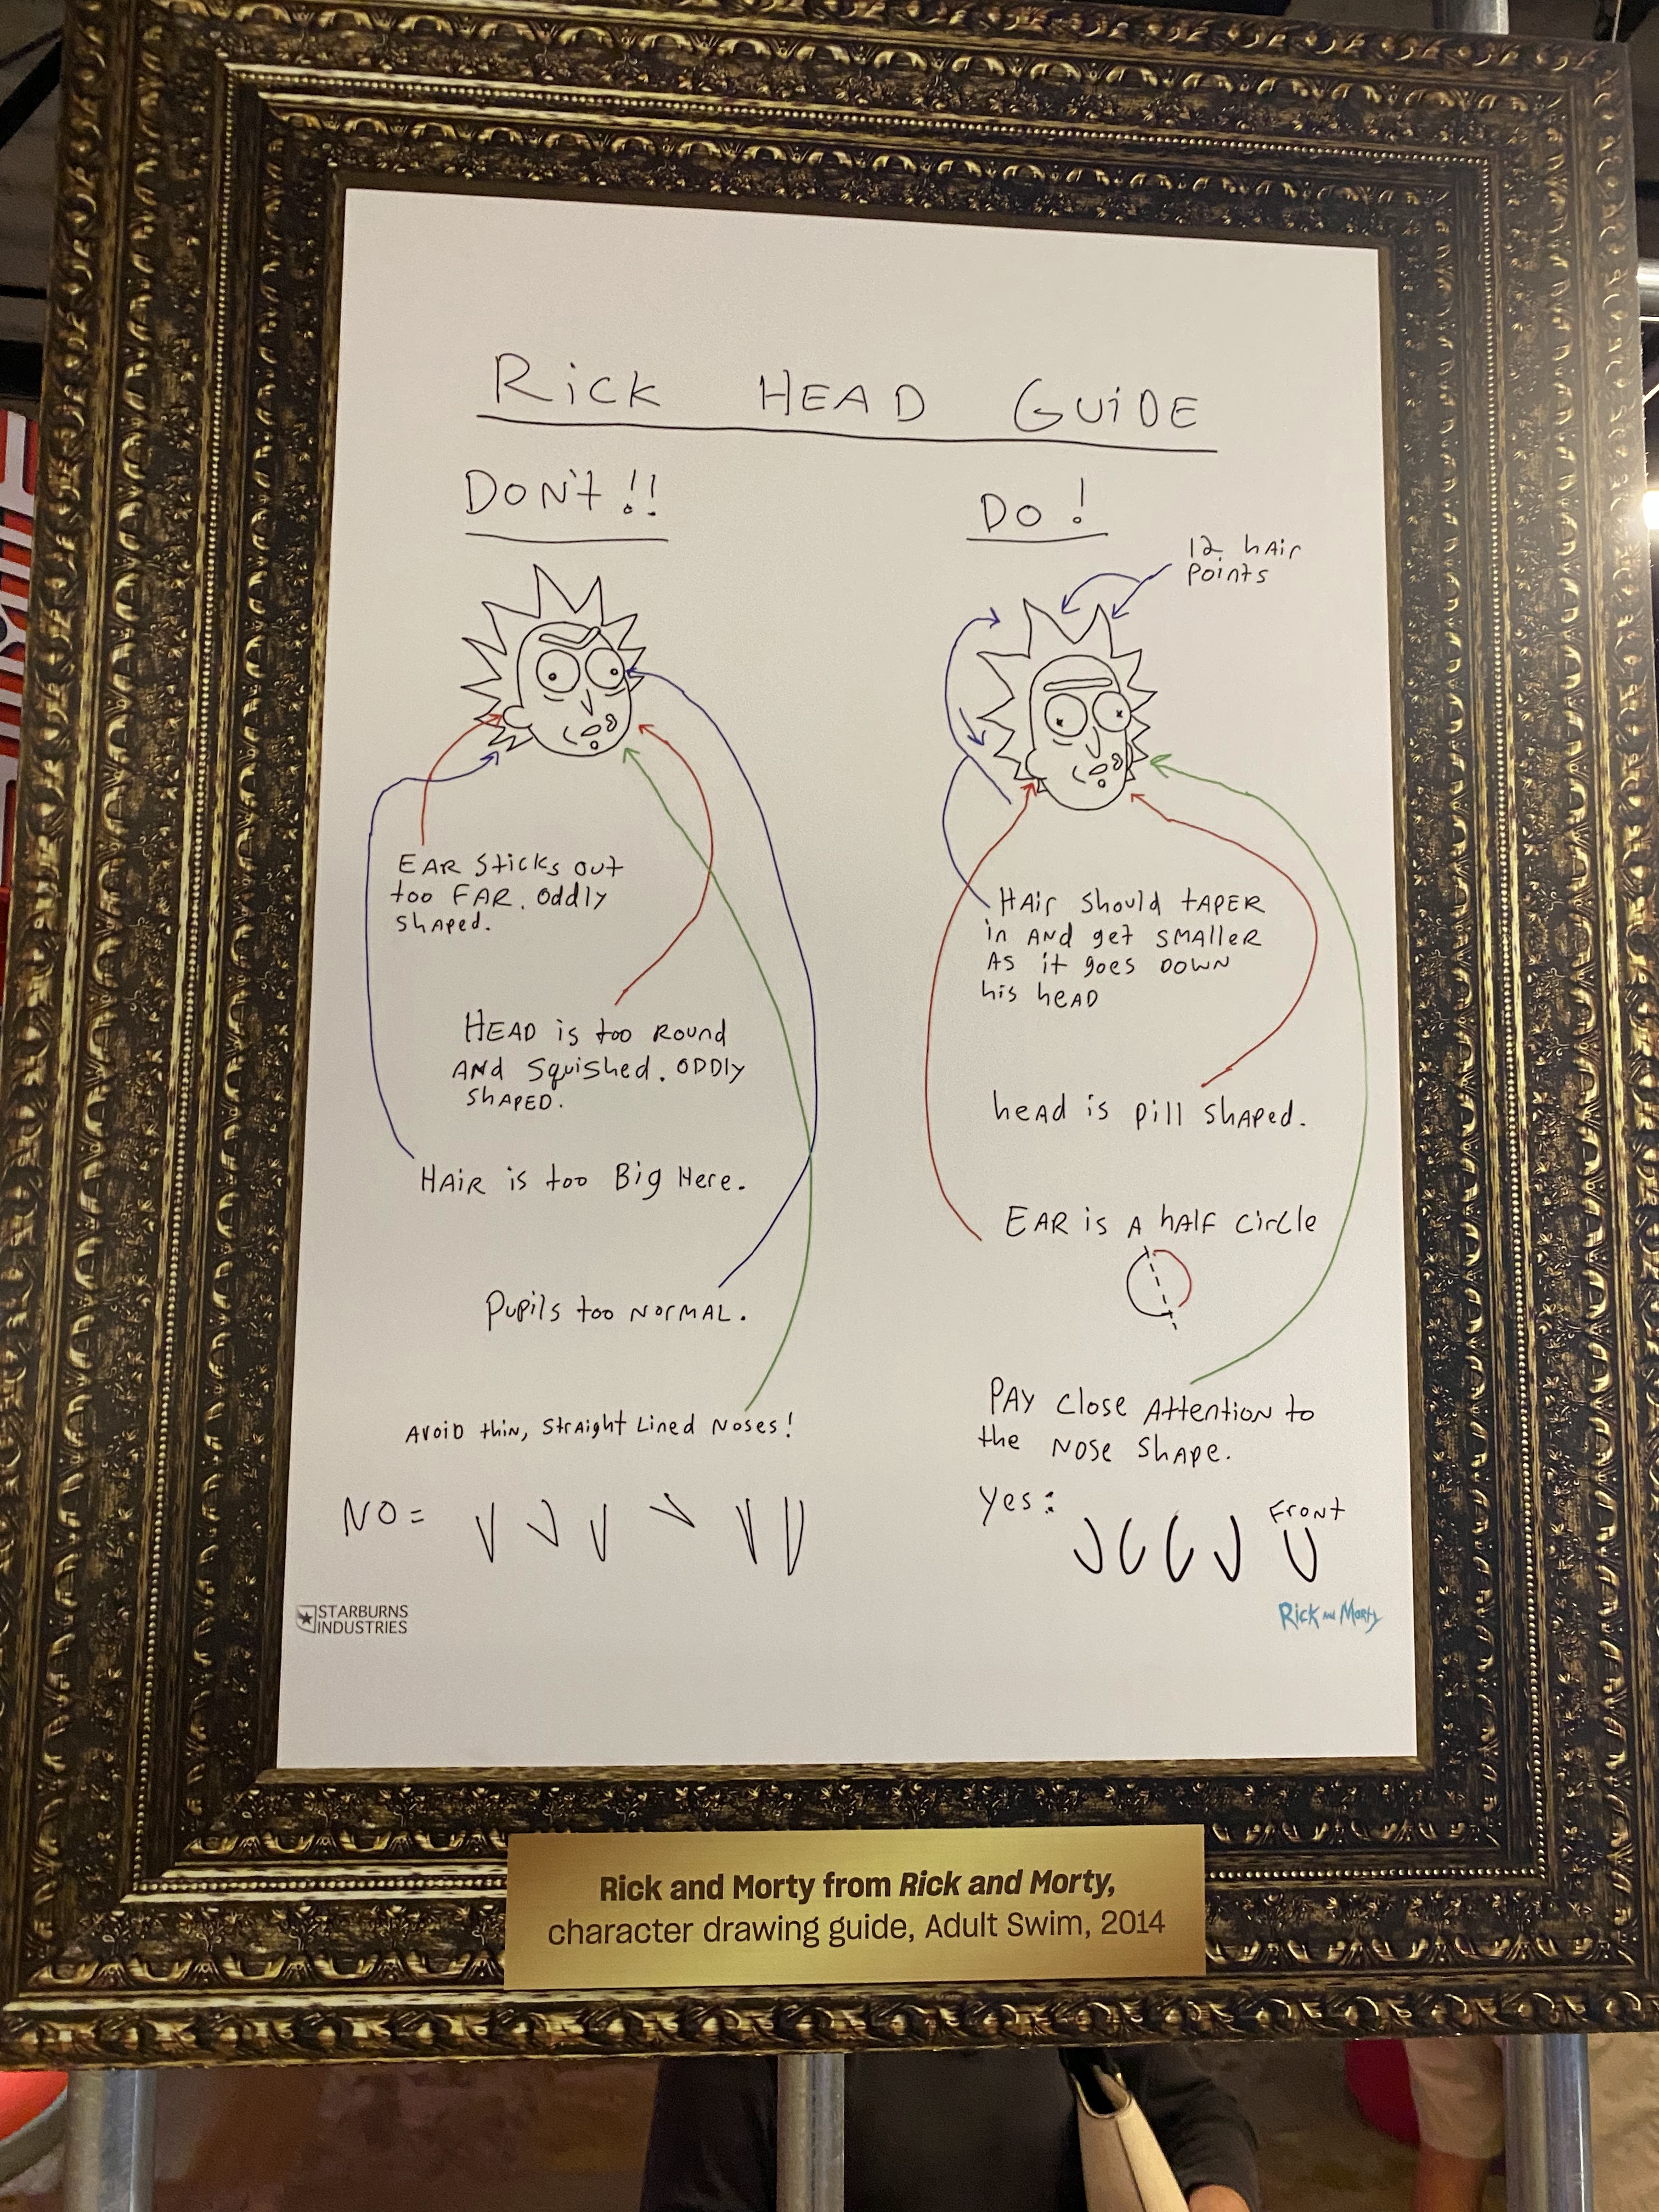 Rick HEAD GUiDE
DON't!!
EAR Sticks out
too FAR. Oddly
shAped.
HEAD is too Round
ANd Squished. ODDly
ShAPED.
HAiR is too Big Here.
Pupils too NorMAL.
AVOiD thiN, StRAight Lined Noses!
NO=
Do!
12 hAir
Points
HAir Should tAPER
in AND get SMAlleR
As it goes DOWN
his heAD
heAd is pill shAped.
EAR is A hAlF circle
PAY Close Attention to
the Nose ShApe.
Yes:
Front
STARBURNS
INDUSTRIES
Rick AND Morty
Rick and Morty from Rick and Morty,
character drawing guide, Adult Swim, 2014